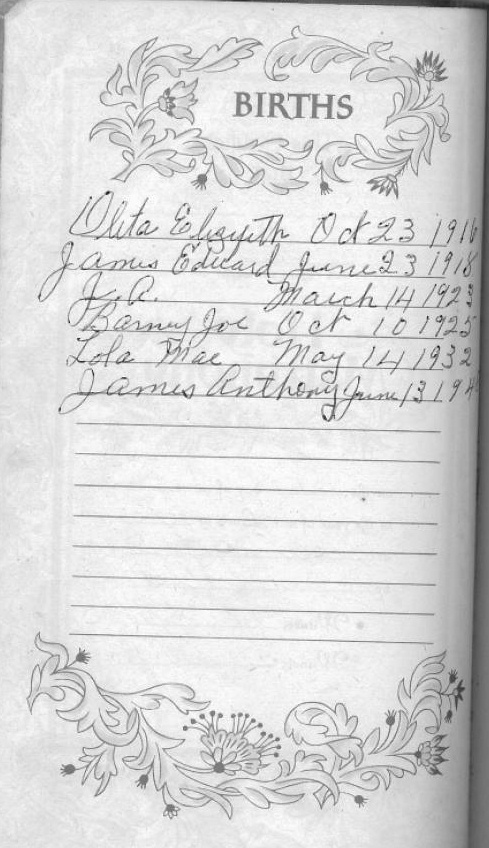 BIRTHS
Oleta Elizabeth Oct 23 1916
James Edward June 23 1918
J. A. March 14 1923
Barney Joe Oct 10 1925
Lola Mae May 14 1932
James Anthony June 13 194